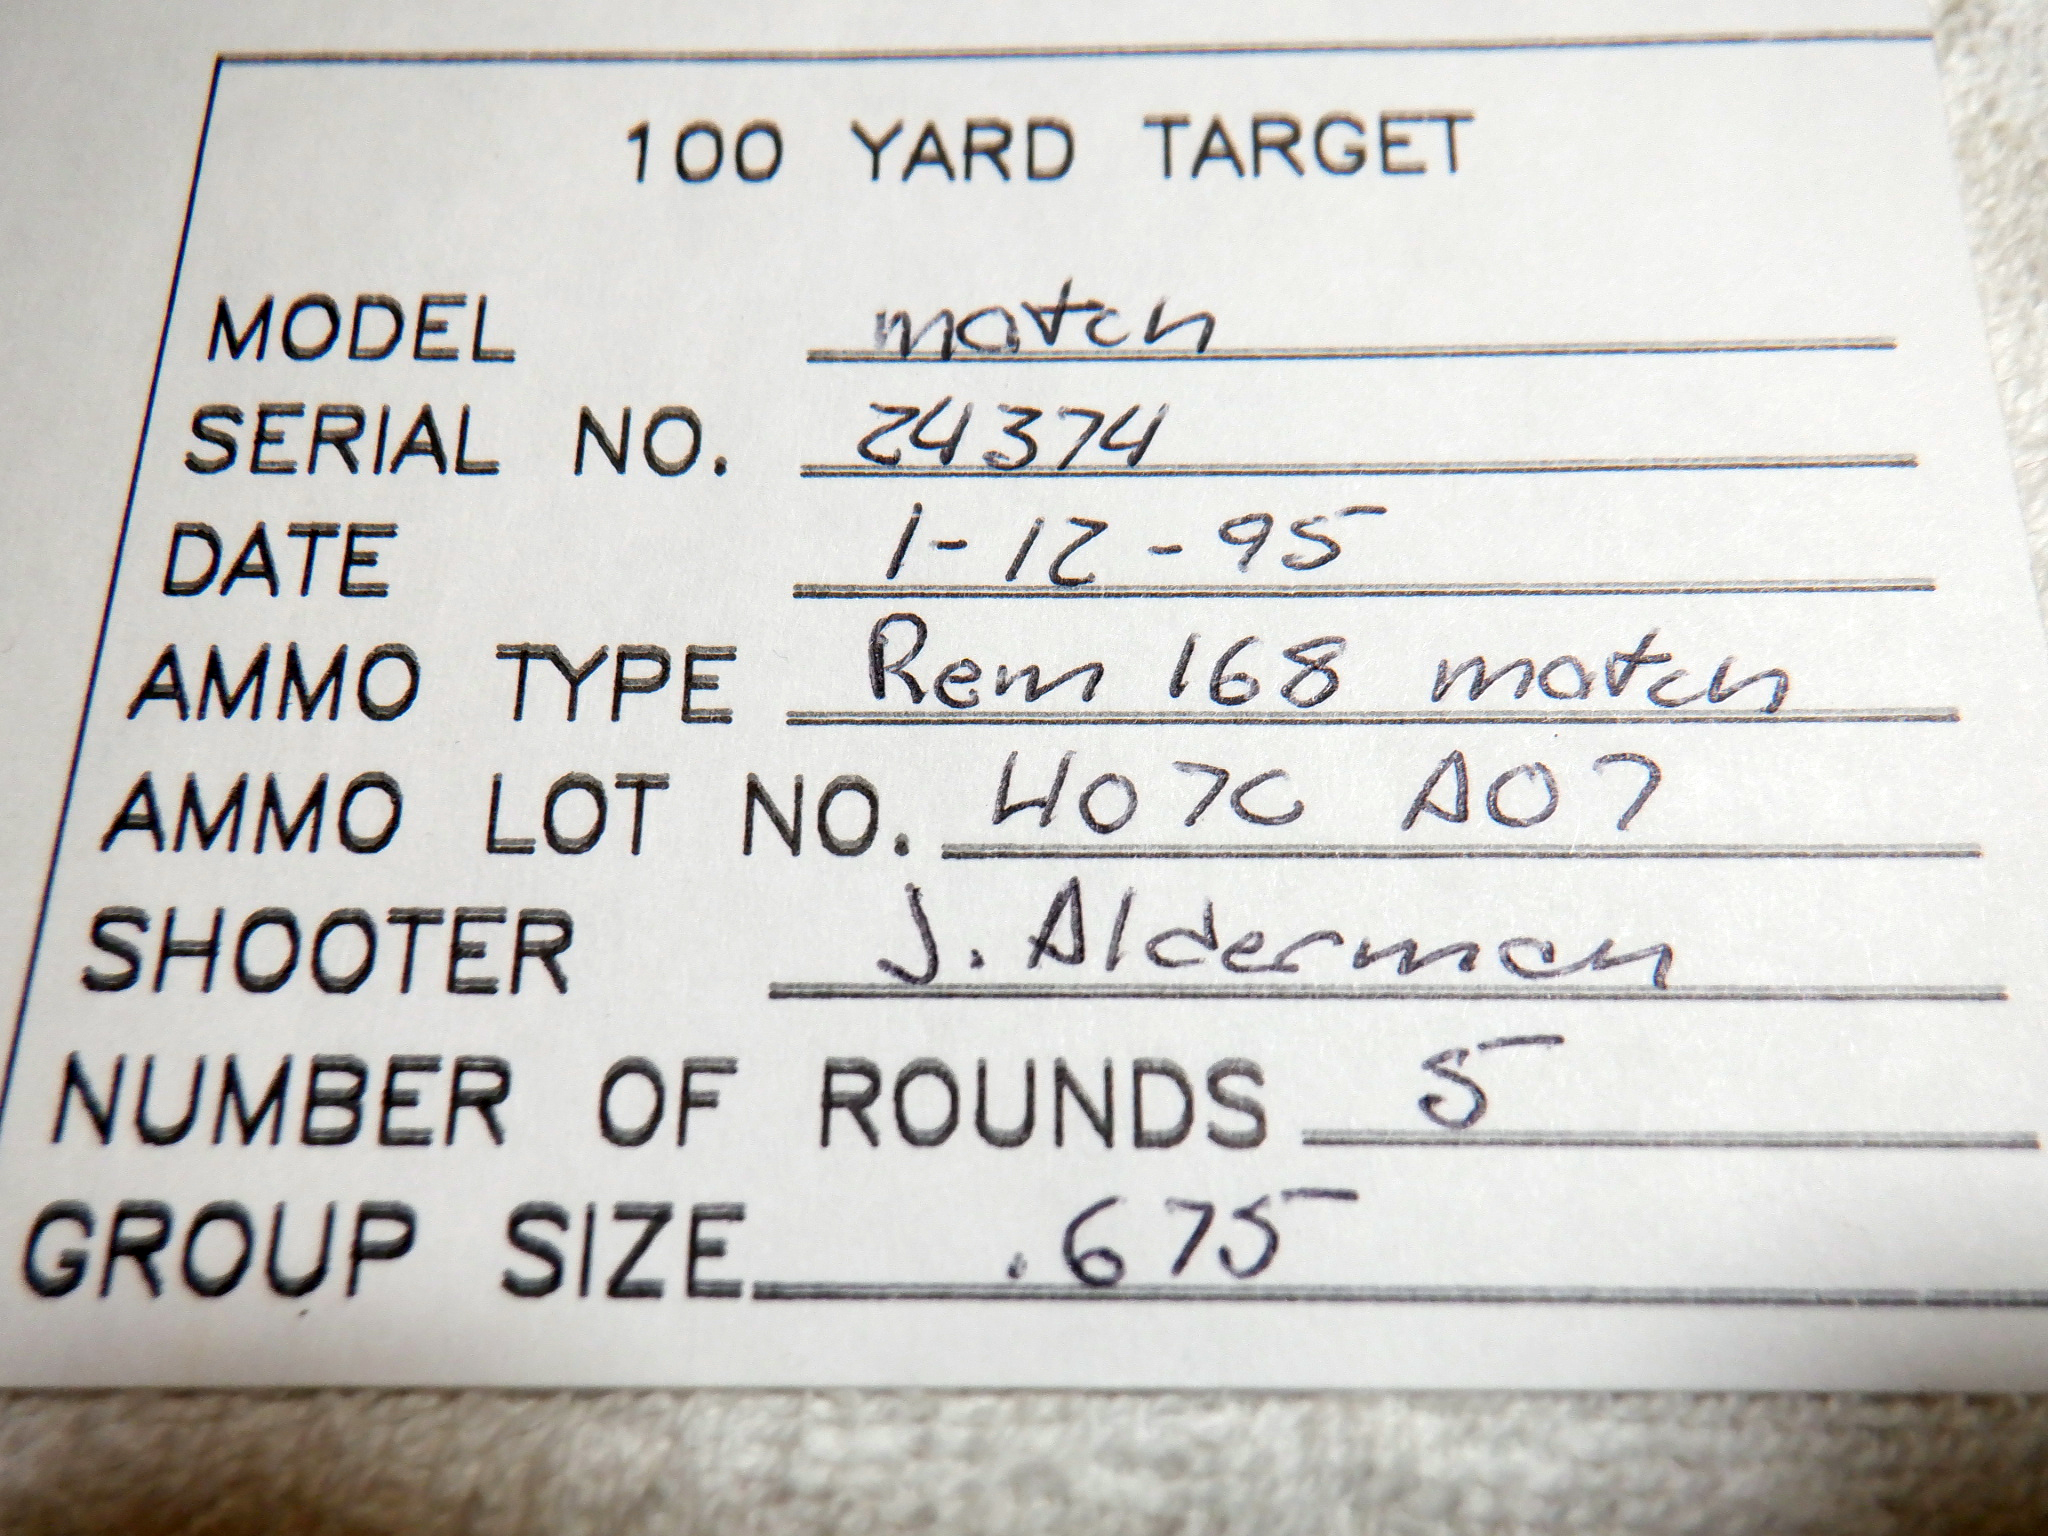 100 YARD TARGET
MODEL match
SERIAL NO. 24374
DATE 1-12-95
AMMO TYPE Rem 168 match
AMMO LOT NO. H07C A07
SHOOTER J. Alderman
NUMBER OF ROUNDS 5
GROUP SIZE .675